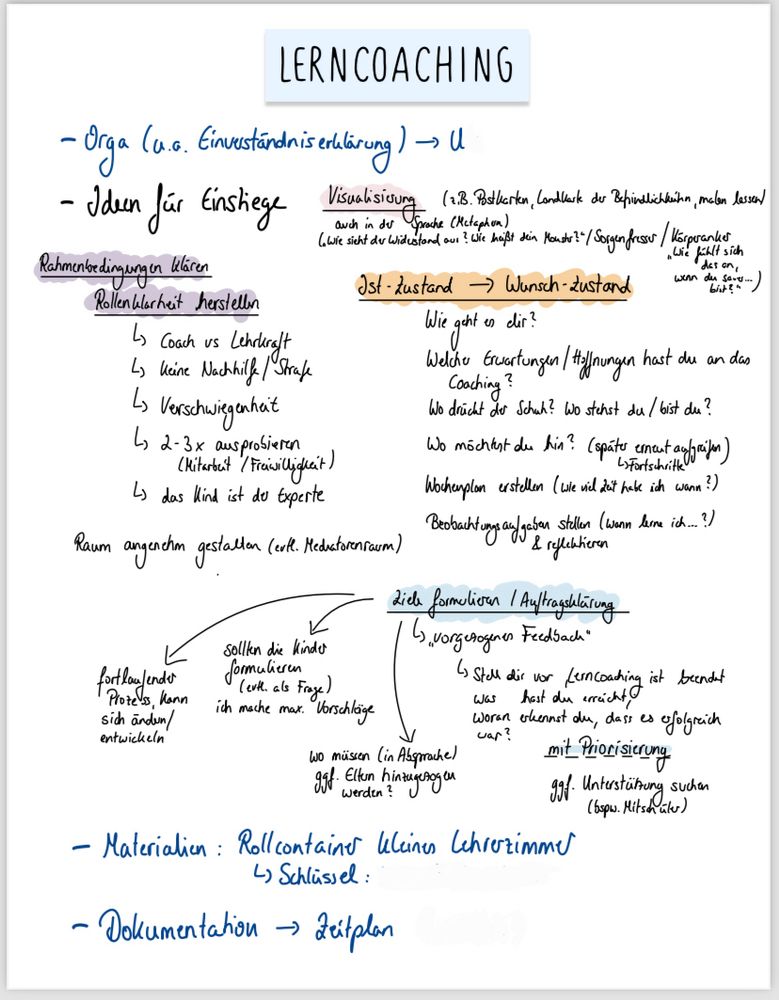 LERNCOACHING
- Orga (u.a. Einverständniserklärung) → U
- Ideen für Einstiege
Visualisierung (z.B. Postkarten, Landkarte der Befindlichkeiten, malen lassen)
auch in der Sprache (Metaphern)
("Wie sieht der Widerstand aus? Wie heißt dein Monster?" / Sorgenfresser / Körperanker
"Wie fühlt sich
das an,
wenn du sauer...
bist?")
Rahmenbedingungen klären
Rollenklarheit herstellen
↳ Coach vs Lehrkraft
↳ keine Nachhilfe / Strafe
↳ Verschwiegenheit
↳ 2-3x ausprobieren
(Mitarbeit / Freiwilligkeit)
↳ das Kind ist der Experte
Raum angenehm gestalten (evtl. Mediatorenraum)
Ist-Zustand → Wunsch-Zustand
Wie geht es dir?
Welche Erwartungen / Hoffnungen hast du an das
Coaching?
Wo drückt der Schuh? Wo stehst du / bist du?
Wo möchtest du hin? (später erneut aufgreifen)
↳ Fortschritte
Wochenplan erstellen (Wie viel Zeit habe ich wann?)
Beobachtungsaufgaben stellen (Wann lerne ich...?)
& reflektieren
Ziele formulieren / Auftragsklärung
↳ "vorgezogenes Feedback"
↳ Stell dir vor Lerncoaching ist beendet
was hast du erreicht,
woran erkennst du, dass es erfolgreich
war?
mit Priorisierung
ggf. Unterstützung suchen
(bspw. Mitschüler)
fortlaufender
Prozess, kann
sich ändern/
entwickeln
sollten die Kinder
formulieren
(evtl. als Frage)
ich mache max. Vorschläge
wo müssen (in Absprache)
ggf. Eltern hinzugezogen
werden?
- Materialien: Rollcontainer kleines Lehrerzimmer
↳ Schlüssel:
- Dokumentation → Zeitplan